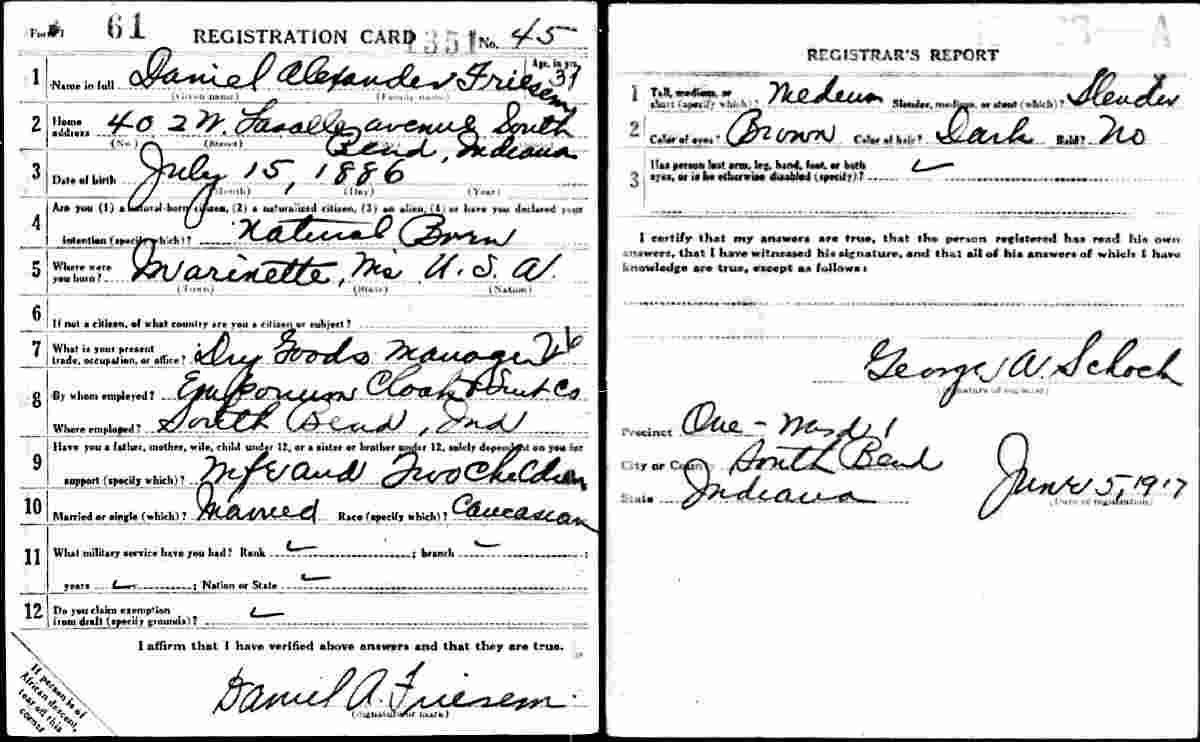 Form 1 61 REGISTRATION CARD 1351 No. 45
1 Name in full Daniel Alexander Friesem Age, in yrs. 31
(Given name) (Family name)
2 Home address 402 W. Lasalle avenue South
(No.) (Street)
Bend, Indiana
3 Date of birth July 15, 1886
(Month) (Day) (Year)
4 Are you (1) a natural-born citizen, (2) a naturalized citizen, (3) an alien, (4) or have you declared your
intention (specify which)? Natural Born
5 Where were you born? Marinette, U. S. A.
(Town) (State) (Nation)
6 If not a citizen, of what country are you a citizen or subject?
7 What is your present trade, occupation, or office? Dry Goods Manager
8 By whom employed? Emporium Cloak & Suit Co
Where employed? South Bend, Ind
9 Have you a father, mother, wife, child under 12, or a sister or brother under 12, solely dependent on you for
support (specify which)? Wife and Two Children
10 Married or single (which)? Married Race (specify which)? Caucasian
11 What military service have you had? Rank ; branch ;
years ; Nation or State
12 Do you claim exemption from draft (specify grounds)?
I affirm that I have verified above answers and that they are true.
Daniel A. Friesem.
(Signature or mark)
If person is of
African descent,
tear off this
corner
REGISTRAR'S REPORT
1 Tall, medium, or short (specify which)? Medeum Slender, medium, or stout (which)? Slender
2 Color of eyes? Brown Color of hair? Dark Bald? No
3 Has person lost arm, leg, hand, foot, or both
eyes, or is he otherwise disabled (specify)?
I certify that my answers are true, that the person registered has read his own
answers, that I have witnessed his signature, and that all of his answers of which I have
knowledge are true, except as follows:
George A. Schock
(Signature of registrar)
Precinct One - Ward 1
City or County South Bend
State Indiana June 5, 1917
(Date of registration)